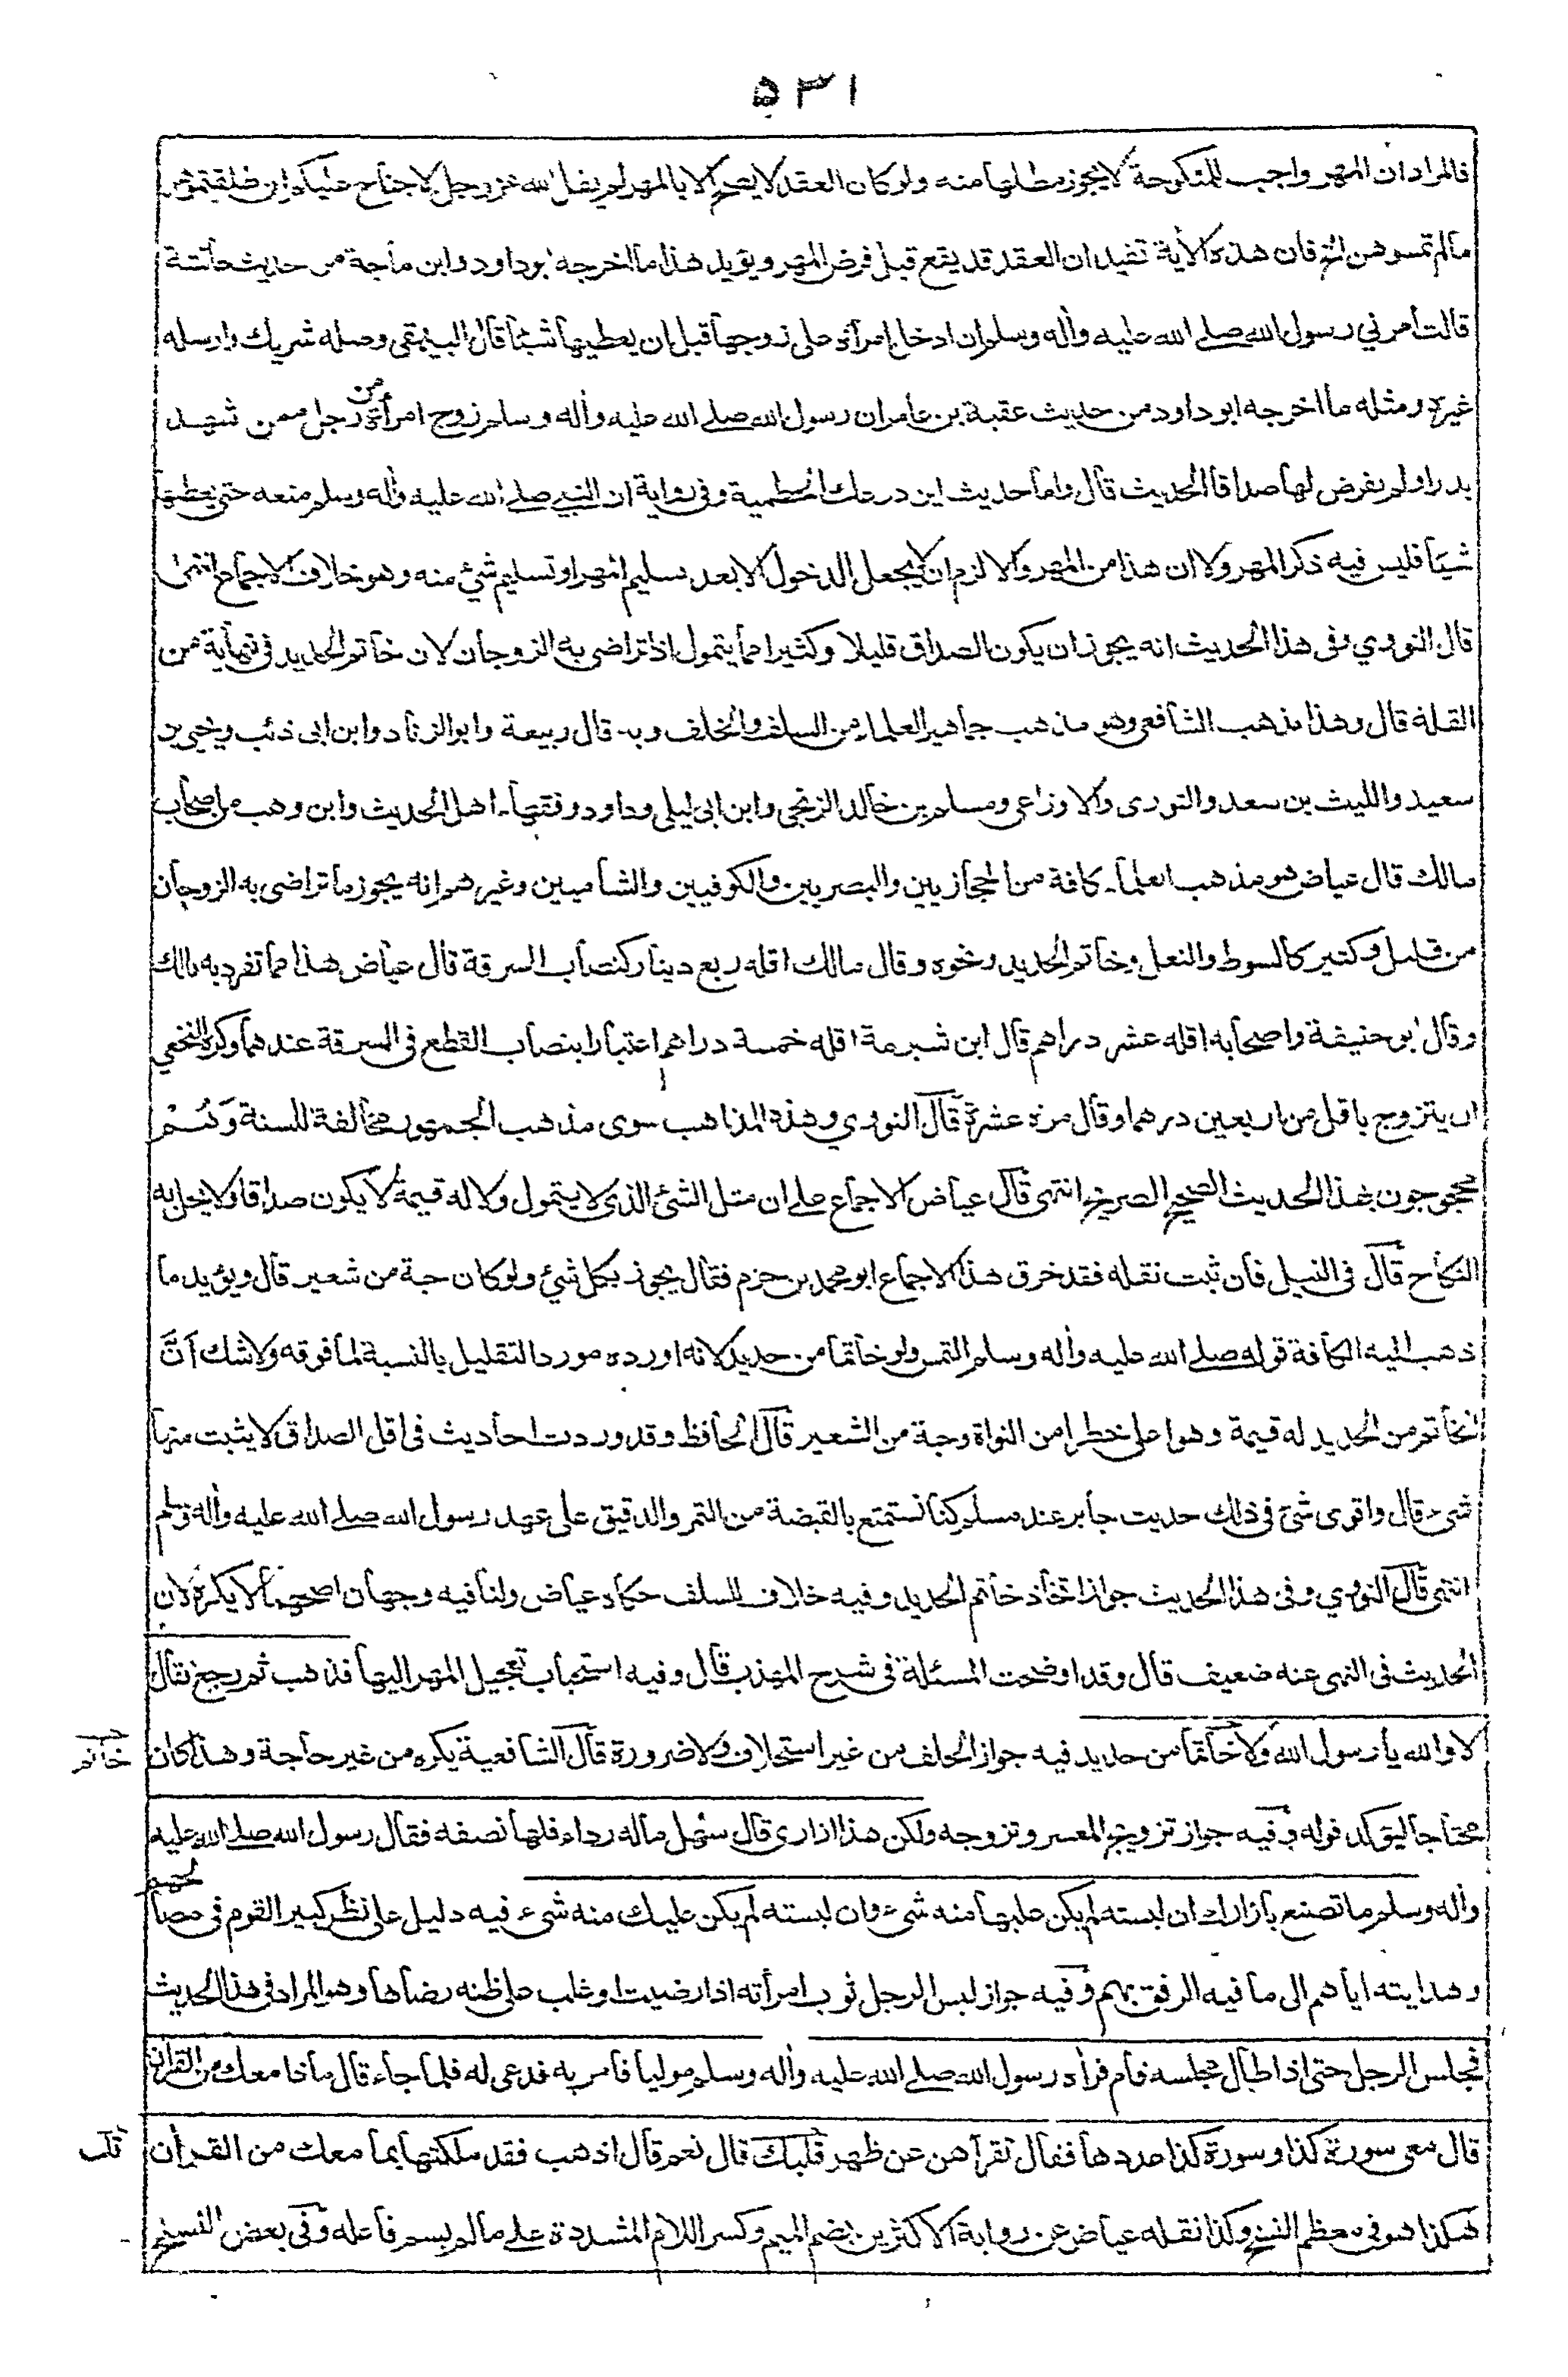 ٥٣١
فالمراد ان المهر واجب للمنكوحة لا يجوز مطلبها منه ولو كان العقد لا يصح الا بالمهر لم يقل الله عز وجل لا جناح عليكم ان طلقتموهن
مالم تمسوهن الخ فان هذه الأية تفيد ان العقد قد يقع قبل فرض المهر ويؤيد هذا ما اخرجه ابوداود وابن ماجة من حديث عائشة
قالت امرني رسول الله صلے الله عليه وأله وسلم ان ادخل امرأة على زوجها قبل ان يعطيها شيئا قال البيهقي وصله شريك وارسله
غيره ومثله ما اخرجه ابو داود من حديث عقبة بن عامر ان رسول الله صلے الله عليه وأله وسلم زوج امرأة من رجل ممن شهد
بدرا ولم يفرض لها صداقا الحديث قال واما حديث ابن درعك الحطمية وفى رواية ان النبي صلے الله عليه وأله وسلم منعه حتى يعطيها
شيئا فليس فيه ذكر المهر ولا ان هذا من المهر والا لزم ان لا يجعل الدخول الا بعد تسليم المهر او تسليم شئ منه وهو خلاف الاجماع انتهى
قال النووي وفى هذا الحديث انه يجوز ان يكون الصداق قليلا وكثيرا مما يتمول اذا تراضى به الزوجان لان خاتم الحديد فى نهاية من
القلة قال وهذا مذهب الشافعي وهو مذهب جماهير العلماء من السلف والخلف وبه قال ربيعة وابو الزناد وابن ابى ذئب ويحيى بن
سعيد والليث بن سعد والثورى والاوزاعى ومسلم بن خالد الزنجى وابن ابى ليلى وداود وفقهاء اهل الحديث وابن وهب من اصحاب
مالك قال عياض هو مذهب العلماء كافة من الحجازيين والبصريين والكوفيين والشاميين وغيرهم انه يجوز ما تراضى به الزوجان
من قليل وكثير كالسوط والنعل وخاتم الحديد ونحوه وقال مالك اقله ربع دينار كنصاب السرقة قال عياض هذا مما تفرد به مالك
وقال ابو حنيفة واصحابه اقله عشر دراهم قال ابن شبرمة اقله خمسة دراهم اعتبارا بنصاب القطع فى السرقة عندهما وكره النخعي
ان يتزوج باقل من اربعين درهما وقال مرة عشرة قال النووي وهذه المذاهب سوى مذهب الجمهور مخالفة للسنة وَهُمْ
محجوجون بهذا الحديث الصحيح الصريح انتهى قال عياض الاجماع على ان مثل الشئ الذى لا يتمول ولا له قيمة لا يكون صداقا ولا يحل به
النكاح قال فى النيل فان ثبت نقله فقد خرق هذا الاجماع ابو محمد بن حزم فقال يجوز بكل شئ ولو كان حبة من شعير قال ويؤيد ما
ذهب اليه الكافة قوله صلے الله عليه وأله وسلم التمس ولو خاتما من حديد لانه اورده مورد التقليل بالنسبة لما فوقه ولا شك اَنَّ
الخاتم من الحديد له قيمة وهو اعلى خطرا من النواة وحبة من الشعير قال الحافظ وقد وردت احاديث فى اقل الصداق لا يثبت منها
شئ قال واقوى شئ فى ذلك حديث جابر عند مسلم كنا نستمتع بالقبضة من التمر والدقيق على عهد رسول الله صلے الله عليه وأله وسلم
انتهى قال النووي وفى هذا الحديث جواز اتخاذ خاتم الحديد وفيه خلاف للسلف حكاه عياض ولنا فيه وجهان اصحهما لا يكره لان
الحديث فى النهى عنه ضعيف قال وقد اوضحت المسئلة فى شرح المهذب قال وفيه استحباب تعجيل المهر اليها فذهب ثم رجع فقال
لا والله يا رسول الله ولا خاتما من حديد فيه جواز الحلف من غير استحلاف ولا ضرورة قال الشافعية يكره من غير حاجة وهذا كان
خاتم
محتاجا ليؤكد قوله وفيه جواز تزويج المعسر وتزوجه ولكن هذا ازارى قال سهل ماله رداء فلها نصفه فقال رسول الله صلے الله عليه
وأله وسلم ما تصنع بازارك ان لبسته لم يكن عليها منه شئ وان لبسته لم يكن عليك منه شئ فيه دليل على نظر كبير القوم فى مصالحهم
وهدايته اياهم الى ما فيه الرفق بهم وفيه جواز لبس الرجل ثوب امرأته اذا رضيت او غلب على ظنه رضاها وهو المراد فى هذا الحديث
فجلس الرجل حتى اذا طال مجلسه قام فرأه رسول الله صلے الله عليه وأله وسلم موليا فامر به فدعى له فلما جاء قال ماذا معك من القرأن
قال معى سورة كذا وسورة كذا عددها فقال تقرأهن عن ظهر قلبك قال نعم قال اذهب فقد ملكتها بما معك من القرأن
قلب
هكذا هو فى معظم النسخ وكذا نقله عياض عن رواية الاكثرين بضم الميم وكسر اللام المشددة على مالم يسم فاعله وفى بعض النسخ